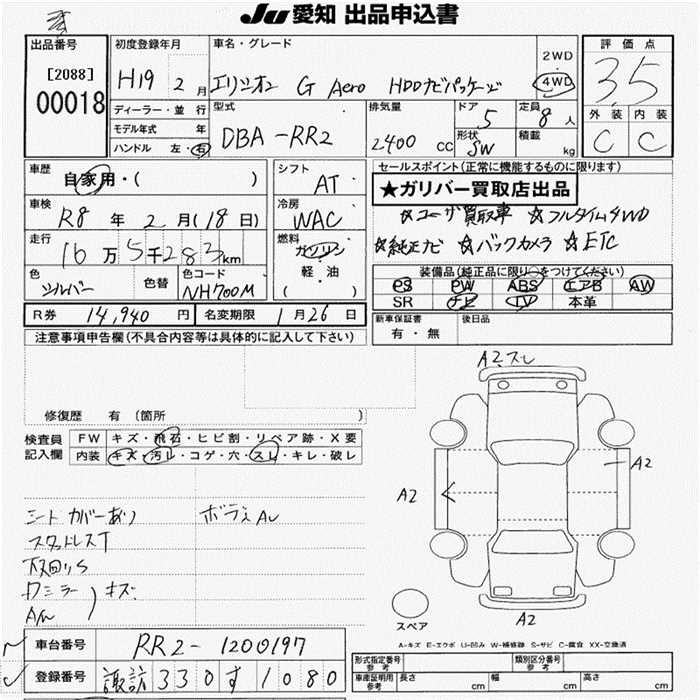 Ju 愛知 出品申込書
出品番号
[2088]
00018
初度登録年月
H19 2 月
車名・グレード
エリシオン G Aero HDDナビパッケージ
2WD
4WD
評価点
3.5
外装 内装
C C
ディーラー・並行
モデル年式 年
ハンドル 左・右
型式
DBA-RR2
排気量
2400 cc
ドア
5
形状
SW
定員
8 人
積載
kg
車歴
自家用・( )
車検
R8 年 2 月(18 日)
走行
16 万 5 千 283 km
色
シルバー
色替
色コード
NH700M
シフト
AT
冷房
WAC
燃料
ガソリン
軽・油
( )
セールスポイント(正常に機能するものに限ります)
★ガリバー買取店出品
☆ユーザ買取車 ☆フルタイム4WD
☆純正ナビ ☆バックカメラ ☆ETC
装備品(純正品に限り○をつけてください)
PS PW ABS エアB AW
SR ナビ TV 本革
R券 14,940 円 名変期限 1 月 26 日
新車保証書
有・無
後日品
注意事項申告欄(不具合内容等は具体的に記入して下さい)
修復歴 有 (箇所 )
検査員
記入欄
FW キズ・飛石・ヒビ割・リペア跡・X要
内装 キズ・汚レ・コゲ・穴・スレ・キレ・破レ
シートカバーあり ボデスAU
スタッドレスT
下回りS
ドミラー キズ
A/W
A2 スレ
A2
A2
A2
スペア
A-キズ E-エクボ U-凹み W-補修跡 S-サビ C-腐食 XX-交換済
車台番号 RR2-1200197
登録番号 諏訪 330 す 1080
型式指定番号
参考
類別区分番号
参考
車庫証明用
参考
長さ cm 幅 cm 高さ cm